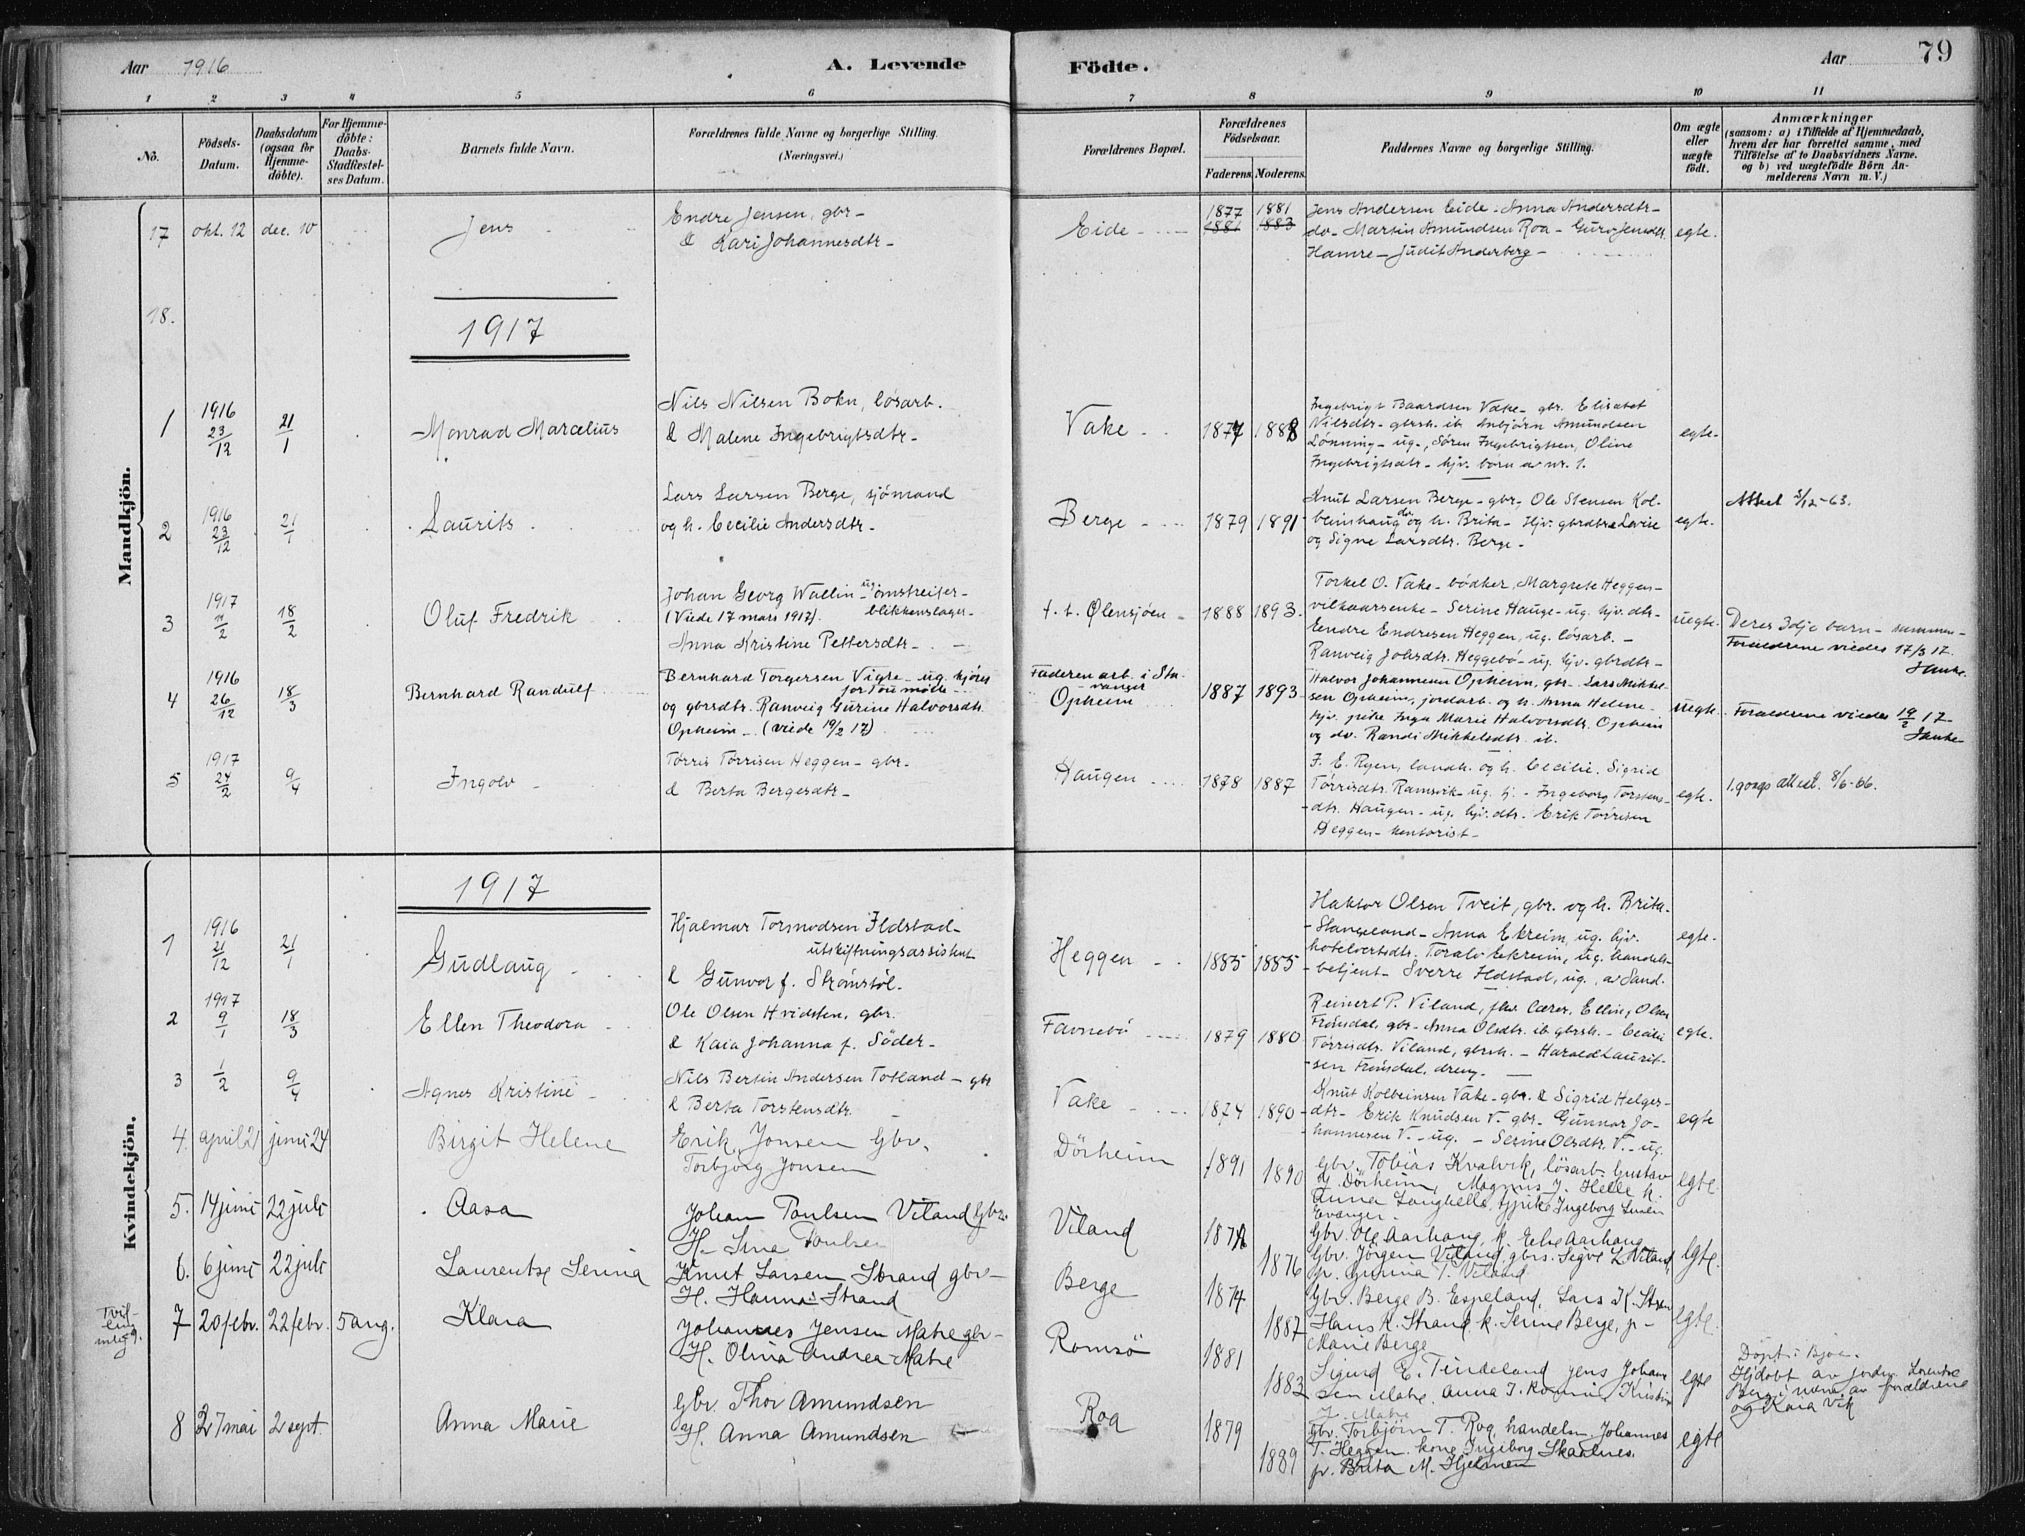 Aar 1916
A. Levende
Födte.
Aar
79
1 2 3 4 5 6 7 8 9 10 11
No.
Födsels-
Datum.
Daabsdatum
(ogsaa for
Hjemme-
döbte).
For Hjemme-
döbte:
Daabs-
Stadfæstel-
ses Datum.
Barnets fulde Navn.
Forældrenes fulde Navne og borgerlige Stilling.
(Næringsvei.)
Forældrenes Bopæl.
Forældrenes
Födselsaar.
Faderens. Moderens.
Faddernes Navne og borgerlige Stilling.
Om ægte
eller
uægte
födt.
Anmærkninger
(saasom: a) i Tilfælde af Hjemmedaab,
hvem der har forrettet samme, med
Tilföielse af to Daabsvidners Navne.
og b) ved uægtefödte Börn An-
melderens Navn m. V.)
Mandkjön.
17 okt. 12 dec. 10
Jens
Endre Jensen, gbr-
& Kari Johannesdtr-
Eide
1877 1881
1881 1883
Jens Andersen Eide. Anna Andersdtr-
do- Martin Amundsen Roa- Guro Jensdtr.
Hamre- Judit Anderberg-
egte.
18.
1917
1 1916 23/12 21/1
Monrad Marcelius
Nils Nilsen Bokn, løsarb.
& Malene Ingebrigtsdtr-
Vake
1877 1888
Ingebrigt Baardsen Vake- gbr. Elisabet
Nilsdtr- gbrsk. ib Anbjörn Amundsen
Lönning- ug., Sören Ingebrigtsen, Oline
Ingebrigtsdtr- hjv. barn av nr. 1.
egte-
2 1916 23/12 21/1
Laurits
Lars Larsen Berge, sjómand
og h. Cecilie Andersdtr-
Berge
1879 1891
Knut Larsen Berge- gbr, Ole Stensen Kol-
beinshaug do og h. Brita- Hjv. gbrdtre Lovise
og Signe Larsdtr. Berge-
egte-
Attest 3/12-63.
3 1917 11/2 18/2
Oluf Fredrik
Johan Georg Wallin- ug. omstreifer-
(Viede 17 mars 1917). blikkenslager-
Anna Kristine Pettersdtr-
f. t. Ølensjøen-
1888 1893
Torkel O. Vake- bödker, Margrete Heggen-
vilkaarsenke- Serine Hauge- ug. hjv. dtr-
Endre Endresen Heggen, ug. løsarb.-
Ranveig Johsdtr. Heggebö- ug. hjv. gbrdtr-
uegte.
Deres 3dje barn- sammen-
Forældrene viedes 17/3 17.
4 1916 26/12 18/3
Bernhard Randulf
Bernhard Torgersen Vigre- ug. kjörer
for Tou mölle-
og gbrsdtr. Ranveig Gurine Halvorsdtr.
Opheim- (viede 19/2 17)
Faderen arb. i Sta-
vanger
Opheim
1887 1893
Halvor Johannesen Opheim, gbr- Lars Mikkel-
sen Opheim, jordarb. og h. Anna Helene-
hjv. pike Inga Marie Halvorsdtr. Opheim
og do. Randi Mikkelsdtr. ib.
uegte.
Forældrene viedes 19/2 17-
5 1917 24/2 9/4
Ingolv
Tørris Törrisen Heggen- gbr-
& Berta Bergesdtr-
Haugen
1878 1887
F. E. Ryen, landh. og h. Cecilie. Sigrid
Törrisdtr. Ramsvik- ug. hj.- Ingeborg Torstens-
dtr. Haugen- ug. hjv. dtr- Erik Törrisen
Heggen- kontorist-
egte.
1. gangs attest. 8/6-66.
Kvindekjön.
1917
1 1916 21/12 21/1
Gudlaug
Hjalmar Tormodsen Ildstad-
utskiftningsassistent
& Gunvor f. Strömstöl-
Heggen
1885 1885
Haktor Olsen Tveit, gbr. og h. Brita-
Stangeland- Anna Ekreim, ug. hjv.
hotelvertsdtr. Toralv Ekreim, ug. handels-
betjent- Sverre Ildstad, ug. av Sand.
egte-
2 1917 9/1 18/3
Ellen Theodora
Ole Olsen Hvidsten, gbr.
& Kaia Johanna f. Söder-
Favnebö
1879 1880
Reinert P. Viland, fhv. lærer, Ellin, Olsen
Frönsdal, gbr- Anna Olsdtr. ib gbrsk.- Cecilie
Törrisdtr. Viland, gbrsk.- Harald Laurit-
sen Frönsdal, dreng.-
egte.
3 1/2 9/4
Agnes Kristine
Nils Bertin Andersen Totland- gbr
& Berta Torstensdtr.
Vake
1874 1890
Knut Kolbeinsen Vake- gbr. & Sigrid Helges-
dtr- Erik Knudsen V. gbr- Gunnar Jo-
hannesen V.- ug.- Serine Olsdtr. V.- ug.
egte
4. april 21 juni 24
Birgit Helene
Erik Jonsen Gbr.
Torbjörg Jonsen
Dörheim
1891 1890
Gbr. Tobias Kvalvik, lösarb. Gustav
Dörheim, Magnus J. Helle k.
Anna Langhelle, tjpike Ingeborg
Evanger.
egte.
5. 14 juni 22 juli
Aasa
Johan Poulsen Viland Gbr.
H. Sina Poulsen
Viland
1878 1876
Gbr. Ole Aarhaug, k. Eelse Aarhaug
Gbr. Jörgen Viland gbrs. Sigve L. Viland
p. Gurina T. Viland
egte.
6. 6 juni 22 juli
Laurentse Serina
Knut Larsen Strand gbr-
H. Hanna Strand
Berge
1877 1887
Gbr. Berge B. Espeland, Lars K. Strand
Hans K. Strand k. Serine Berge, p-
Marie Berge
egte.
Tvil-
ling
m/ 9.
7 20 febr. 22 febr. 5 aug.
Klara
Johannes Jensen Matre gbr-
H. Olina Andrea Matre
Romsö
1881 1883
Sigurd E. Tindeland, Jens Johan
sen Matre, Anna J. Romsö, Kristine
J. Matre
egte
Döpt i Bjoa.
Hjdöbt av jordm. Lorentse
Berg i nærv. av forældrene
og Kaia Vik
8 27 mai 2 sept.
Anna Marie
Gbr. Thor Amundsen
H. Anna Amundsen
Roa
1879 1889
Gbr. Torbjörn T. Roa, handelsm. Johannes
T. Heggen, kone Ingeborg Skaalnes,
p. Brita M. Hjelmen
egte